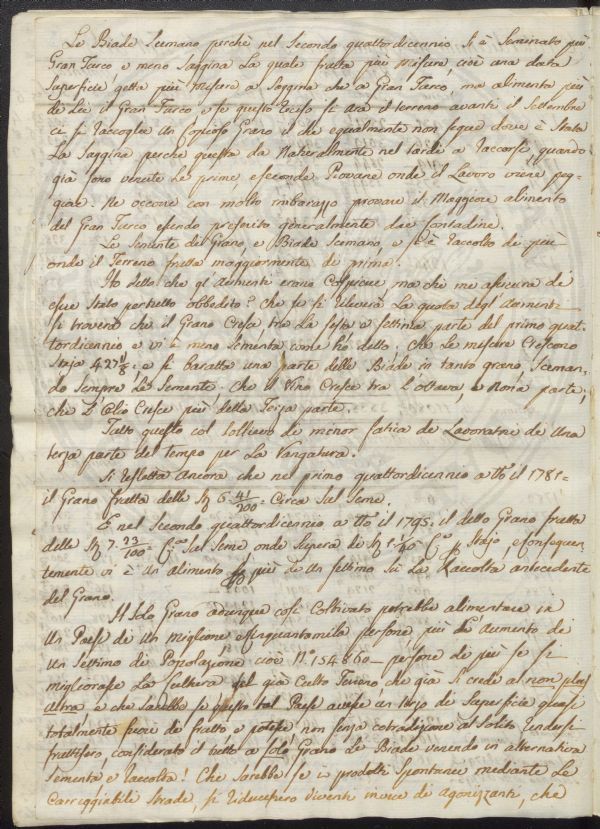 Le Biade Scemano perchè nel Secondo quattordicennio Si è Seminato più
Gran Turco e meno Saggina La quale frutta più Misure, cioè una data
Superficie, getta più Misure a Saggina che a Gran Turco, ma alimenta più
di Lei il Gran Turco e se questo Reciso si ara il terreno avanti il Settembre
ci si Raccoglie Un Copioso Grano il che egualmente non segue dove è Stata
La Saggina perche questa da Naturalmente nel tardi a Raccorsi, quando
già sono venute Le prime efeconde Piovane onde il Lavoro viene peg-
giore. Ne occorre con molto imbarazzo provare il Maggiore alimento
del Gran Turco essendo preferito generalmente dai Contadini.
Le Semente di Grano, e Biade Scemano, e si è Raccolto di più
onde il Terreno frutta maggiormente di prima.
Ho detto che gl'Aumenti erano Cospicui ma chi me assicura di
esser Stato per tutto obbedito? che se si Rileverà La quota degl'Aumenti
si troverà che il Grano Cresce tra La Sesta e Settima parte del primo quat-
tordicennio e vi è meno Sementa come ho detto. Che Le misure Crescono
Staja 427 1/8 e si baratta una parte delle Biade in tanto grano, Sceman-
do Sempre Le Semente. Che il Vino Cresce tra L'ottava, e Nona parte,
che L'Olio Cresce più della Terza parte.
Tutto questo col Sollievo di minor fatica de Lavoratori di Una
terza parte del tempo per La Vangatura.
Si Rifletta Ancora che nel primo quattordicennio a tto il 1781
il Grano frutta delle Stg 6 41/100 Circa Sul Seme.
E nel Secondo quattordicennio a tto il 1795. il detto Grano frutta
delle 7. 23/100 Sul Seme onde Supera di Stajo, e conseguen-
temente vi è Un alimento di più di Un Settimo Su La Raccolta antecedente
del Grano.
Il Solo Grano adunque così Coltivato potrebbe alimentare in
Un Paese di Un Miglione ottinquantamila persone più L'Aumento di
Un Settimo di Popolazione cioè N.o 154860 persone di più se si
migliorasse La Cultura del già Culto Terreno, che già si crede al non plus
ultra e che Sarebbe se questo tal Paese avesse un terzo di Superficie quasi
totalmente fuori di frutto e potesse non senza cotradizione al Solito Rendersi
fruttifero, considerato il tutto a Solo Grano Le Biade venendo in alternativa
Sementa e Raccolta! Che Sarebbe se i prodotti Spontanei mediante Le
Carreggiabili Strade, si Riducessero Viventi invece di Agonizzanti, che